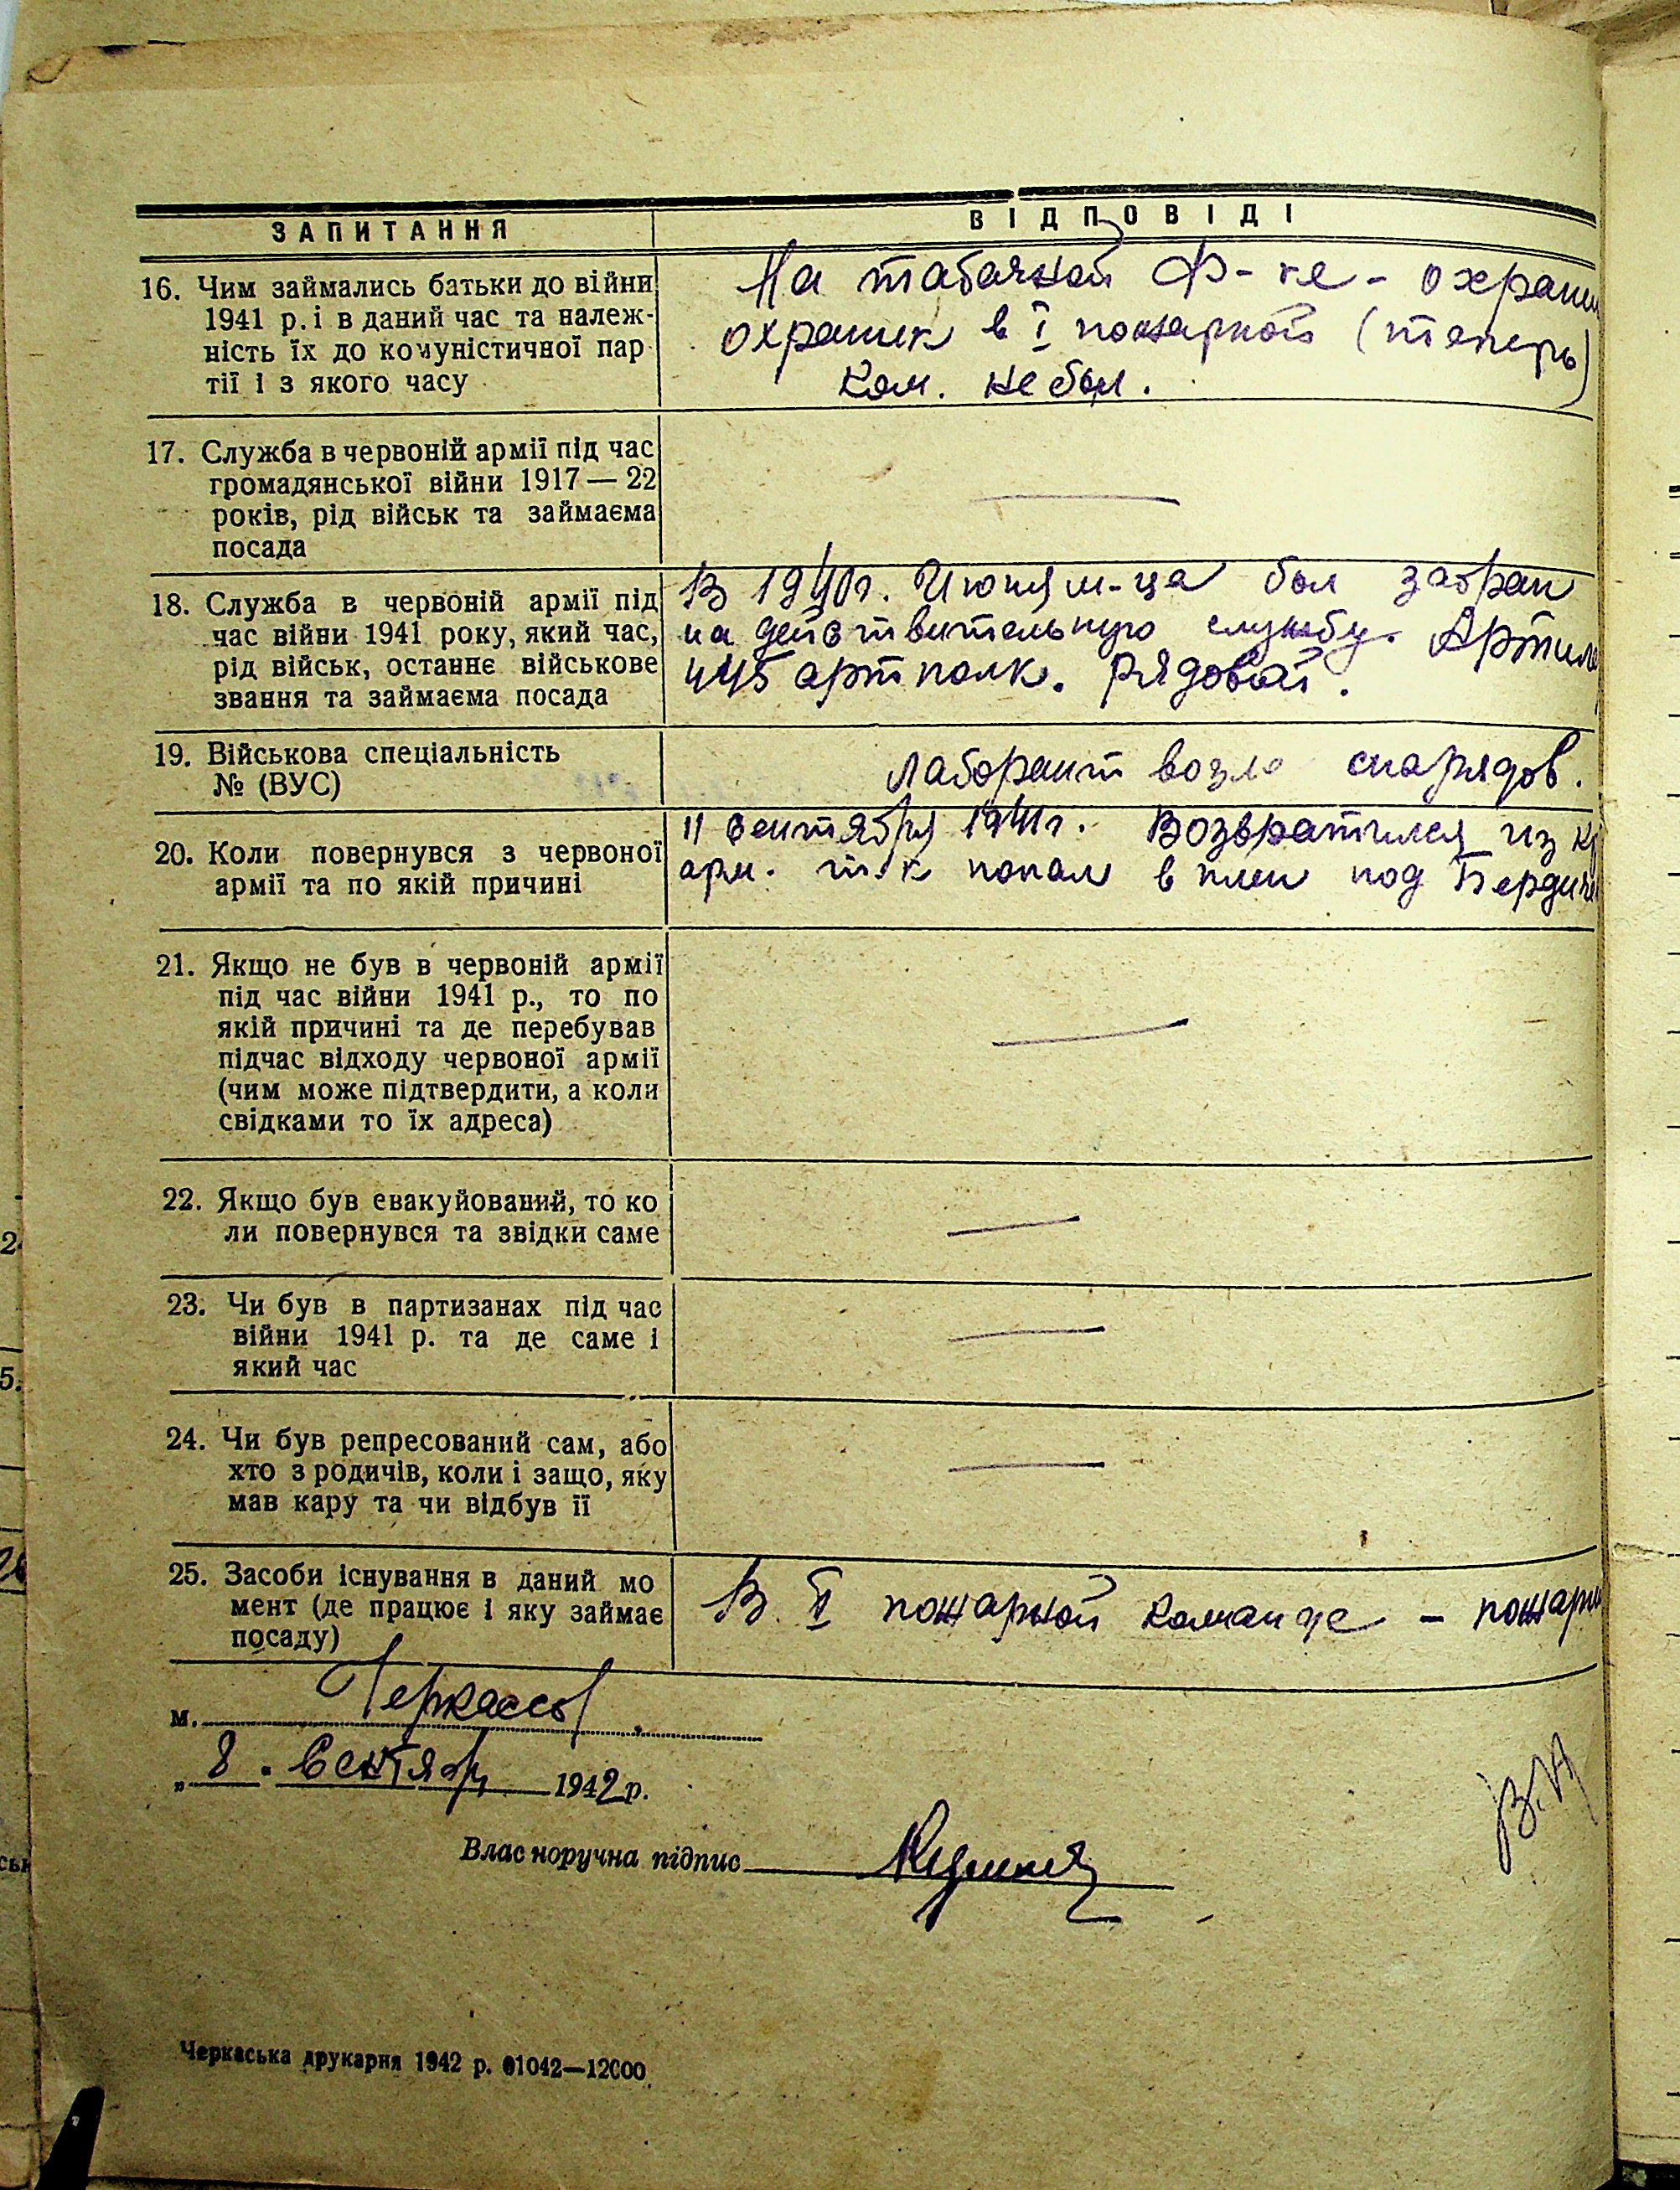 ЗАПИТАННЯ
ВІДПОВІДІ
16. Чим займались батьки до війни
1941 р. і в даний час та належ-
ність їх до комуністичної пар
тії і з якого часу
На табачной Ф-ке - охран
охраник в I пожарной (теперь)
ком. не был.
17. Служба в червоній армії під час
громадянської війни 1917 — 22
років, рід військ та займаєма
посада
18. Служба в червоній армії під
час війни 1941 року, який час,
рід військ, останнє військове
звання та займаєма посада
В 1940г. Июня м-ца был забран
на действительную службу. Артил
445 артполк. Рядовой.
19. Військова спеціальність
№ (ВУС)
Лаборант возле снарядов.
20. Коли повернувся з червоної
армії та по якій причині
11 Сентября 1941г. Возвратился из кр
арм. т.к попал в плен под Бердиче
21. Якщо не був в червоній армії
під час війни 1941 р., то по
якій причині та де перебував
підчас відходу червоної армії
(чим може підтвердити, а коли
свідками то їх адреса)
22. Якщо був евакуйований, то ко
ли повернувся та звідки саме
23. Чи був в партизанах під час
війни 1941 р. та де саме і
який час
24. Чи був репресований сам, або
хто з родичів, коли і защо, яку
мав кару та чи відбув її
25. Засоби існування в даний мо
мент (де працює і яку займає
посаду)
В I пожарной команде - пожарн
м. Черкассы
„ 8 . Сентяб 1942 р.
Власноручна підпис
Черкаська друкарня 1942 р. 01042—12000